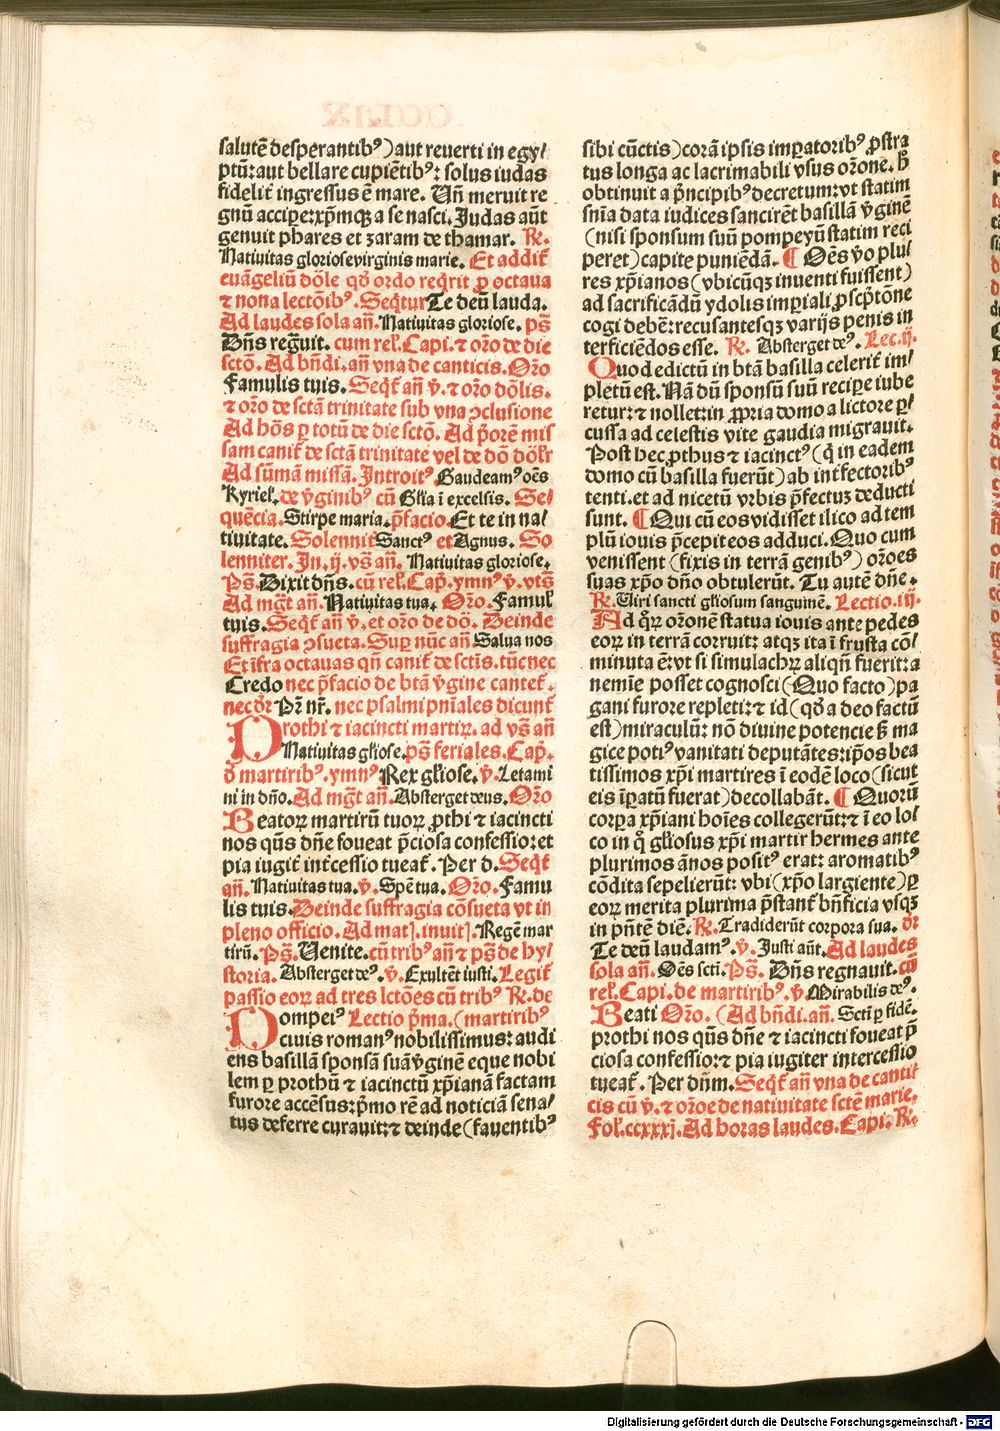 salutē desperantibꝰ) aut reuerti in egy/
ptū: aut bellare cupiētibꝰ: solus iudas
fidelit᷑ ingressus ē mare. Un̄ meruit re
gnū accipe: xp̄mqꝫ a se nasci. Judas aūt
genuit phares et zaram de thamar. ℞.
Natiuitas gloriose virginis marie. Et addit᷑
euāgeliū dōle qd̓ ordo reqͥrit ꝓ octaua
⁊ nona lectōibꝰ. Seqͥtur Te deū lauda.
Ad laudes sola an̄. Natiuitas gloriose. ps̄
Dn̄s regͣuit. cum rel̓. Capi. ⁊ oro de die
sctō. Ad bn̄di. an̄ vna de canticis. Oro
Famulis tuis. Seqt᷑ an̄ v̄. ⁊ oro dōlis.
⁊ oro de sctā trinitate sub vna ↄclusione
Ad hōs ꝑ totū de die sctō. Ad p̄orē mis
sam canit᷑ de sctā trinitate vel de dō dōl̓r
Ad sūmā missā. Introitꝰ Gaudeamꝰ oēs
Kyriel̓. de v̓ginibꝰ cū Gl̓ia ī excelsis. Se/
quēcia. Stirpe maria. p̄facio. Et te in na/
tiuitate. Solennit᷑ Sanctꝰ et Agnus. So
lenniter. In. ij. vs̄ an̄. Natiuitas gloriose.
Ps̄. Dixit dn̄s. cū rel̓. Cap̄. ymnꝰ v̄. vts̄
Ad mgt̄ an̄. Natiuitas tua. Oro. Famul̓
tuis. Seqt᷑ an̄ v̄. et oro de dō. Deinde
suffragia ↄsueta. Sup̱ nūc an̄. Salua nos
Et īfra octauas qn̄ canit᷑ de sctīs. tūc nec
Credo nec p̄facio de btā v̓gine cantet᷑.
nec dr̄ Pr̄ nr̄. nec psalmi pn̄iales dicunt᷑
Prothi ⁊ iacincti martiꝝ. ad vs̄ an̄
Natiuitas gl̓iose. ps̄ feriales. Cap̄.
đ martiribꝰ. ymnꝰ Rex gl̓iose. v̄. Letami
ni in dn̄o. Ad mgt̄ an̄. Absterget deus. Oro
Beatoꝝ martirū tuoꝝ ꝓthi ⁊ iacincti
nos qūs dn̄e foueat p̄ciosa confessio: et
pia iugit᷑ int᷑cessio tueat᷑. Per d. Seqt᷑
an̄. Natiuitas tua. v̄. Spē tua. Oro. Famu
lis tuis. Deinde suffragia cōsueta vt in
pleno officio. Ad mat]. inuit]. Regē mar
tirū. Ps̄. Uenite. cū tribꝰ an̄ ⁊ ps̄ de hy/
storia. Absterget deꝰ. v̄. Exultēt iusti. Legit᷑
passio eoꝝ ad tres lctōes cū tribꝰ ℞. de
Pompeiꝰ Lectio p̄ma. (martiribꝰ
ciuis romanꝰ nobilissimus: audi
ens basillā sponsā suā v̓ginē eque nobi
lem ꝑ prothū ⁊ iacinctū xp̄ianā factam
furore accēsus: p̄mo rē ad noticiā sena/
tus deferre curauit: ⁊ deinde (fauentibꝰ
sibi cūctis) corā ipsis imꝑatoribꝰ ꝓstra
tus longa ac lacrimabili vsus orōne. h̄
obtinuit a p̄ncipibꝰ decretum: vt statim
sn̄ia data iudices sancirēt basillā v̓ginē
(nisi sponsum suū pompeyū statim reci
peret) capite puniēdā. ¶ Oēs v̓o plu/
res xp̄ianos (vbicūqꝫ inuenti fuissent)
ad sacrificādū ydolis imꝑiali ꝓscp̄tōne
cogi debēt: recusantesqꝫ varijs penis in
terficiēdos esse. ℞. Absterget deꝰ. Lec. ij.
Quod edictū in btā basilla celerit᷑ im/
pletū est. Nā dū sponsū suū recipe iube
retur: ⁊ nollet: in ꝓpria domo a lictore ꝑ/
cussa ad celestis vite gaudia migrauit.
Post hec ꝓthus ⁊ iacinctꝰ (qͥ in eadem
domo cū basilla fuerūt) ab int᷑fectoribꝰ
tenti. et ad nicetū vrbis p̄fectuꝫ deducti
sunt. ¶ Qui cū eos vidisset ilico ad tem
plū iouis p̄cepit eos adduci. Quo cum
venissent (fixis in terrā genibꝰ) orōes
suas xp̄o dn̄o obtulerūt. Tu autē dn̄e.
℞. Uiri sancti gl̓iosum sanguinē. Lectio. iij.
Ad qͦꝝ orōnē statua iouis ante pedes
eoꝝ in terrā corruit: atqꝫ ita ī frusta cō/
minuta ē: vt si simulachꝝ aliqn̄ fuerit: a
nemīe posset cognosci (Quo facto) pa
gani furore repleti: ⁊ id (qd̓ a deo factū
est) miraculū: nō diuine potencie sꝫ ma
gice potiꝰ vanitati deputātes: ip̄os bea
tissimos xp̄i martires ī eodē loco (sicut
eis īꝑatū fuerat) decollabāt. ¶ Quorū
corꝑa xp̄iani hoīes collegerūt: ⁊ ī eo lo/
co in qͦ gl̓iosus xp̄i martir hermes ante
plurimos ānos positꝰ erat: aromatibꝰ
cōdita sepelierūt: vbi (xp̄o largiente) ꝑ
eoꝝ merita plurima p̄stant᷑ bn̄ficia vsqꝫ
in pn̄tē diē. ℞. Tradiderūt corpora sua. dr̄
Te deū laudamꝰ. v̄. Justi aūt. Ad laudes
sola an̄. Oēs scti. Ps̄. Dn̄s regnauit. cū
rel̓. Capi. de martiribꝰ. v̄ Mirabilis deꝰ.
Beati Oro. (Ad bn̄di. an̄. Scti ꝑ fidē.
prothi nos qūs dn̄e ⁊ iacincti foueat p̄
ciosa confessio: ⁊ pia iugiter intercessio
tueat᷑. Per dn̄m. Seqt᷑ an̄ vna de cantit᷑
cis cū v̄. ⁊ oroe de natiuitate sctē marie.
fol̓. ccxxxj. Ad horas laudes. Capi. ℞.
Digitalisierung gefördert durch die Deutsche Forschungsgemeinschaft - DFG